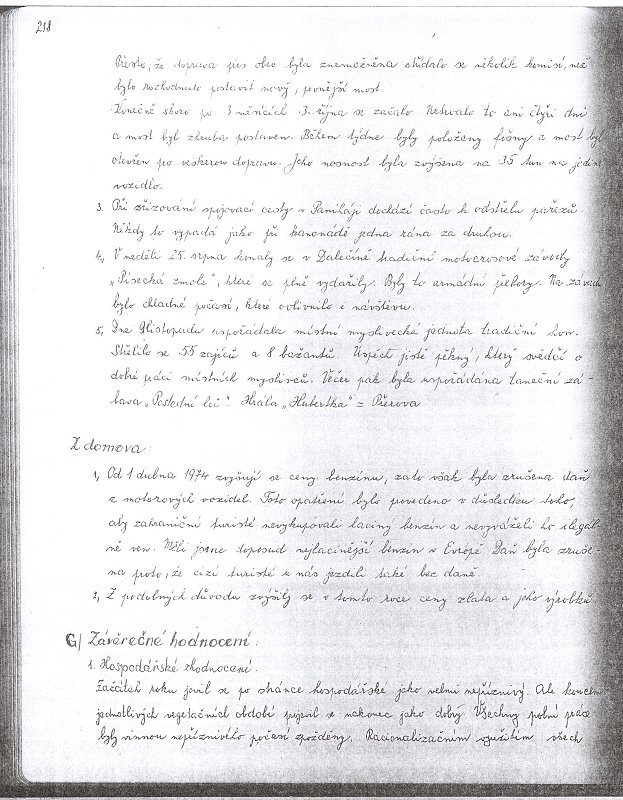 218
Přesto, že doprava přes obec byla znemožněna střídalo se několik komisí, než
bylo rozhodnuto postavit nový, pevnější most.
Konečně skoro po 3 měsících 3. října se začalo. Netrvalo to ani čtyři dni
a most byl zhruba postaven. Během týdne byly položeny fošny a most byl
otevřen po veškerou dopravu. Jeho nosnost byla zvýšena na 35 tun na jedno
vozidlo.
3. Při zřizování spojovací cesty v Paniháji dochází často k odstřelu pařezů.
Někdy to vypadá jako při kanonádě jedna rána za druhou.
4, V neděli 25. srpna konaly se v Dalečíně tradiční motocrosové závody
„Písecká zmole", které se plně vydařily. Byly to armádní přebory. Na závodu
bylo chladné počasí, které ovlivnilo i návštěvu.
5, Dne 9listopadu uspořádala místní myslivecká jednota tradiční hon.
Střelilo se 55 zajíců a 8 bažantů. Úspěch jistě pěkný, který svědčí o
dobré práci místních myslivců. Večer pak byla uspořádána taneční zá-
bava „Poslední leč". Hrála „Hubertka" z Přerova.
Z domova:
1, Od 1 dubna 1974 zvyšují se ceny benzínu, zato však byla zrušena daň
z motorových vozidel. Toto opatření bylo provedeno v důsledku toho,
aby zahraniční turisté nevykupovali laciný benzín a nevyváželi ho ilegál-
ně ven. Měli jsme doposud nejlacinější benzin v Evropě. Daň byla zruše-
na proto, že cizí turisté u nás jezdili také bez daně.
2, Z podobných důvodu zvýšily se v tomto roce ceny zlata a jeho výrobků.
G/ Závěrečné hodnocení:
1. Hospodářské zhodnocení.
Začátek roku jevil se po stránce hospodářské jako velmi nepříznivý. Ale koncem
jednotlivých vegetačních období projevil se nakonec jako dobrý. Všechny polní práce
byly vinnou nepříznivého počasí zpožděny. Racionalizačním využitím všech